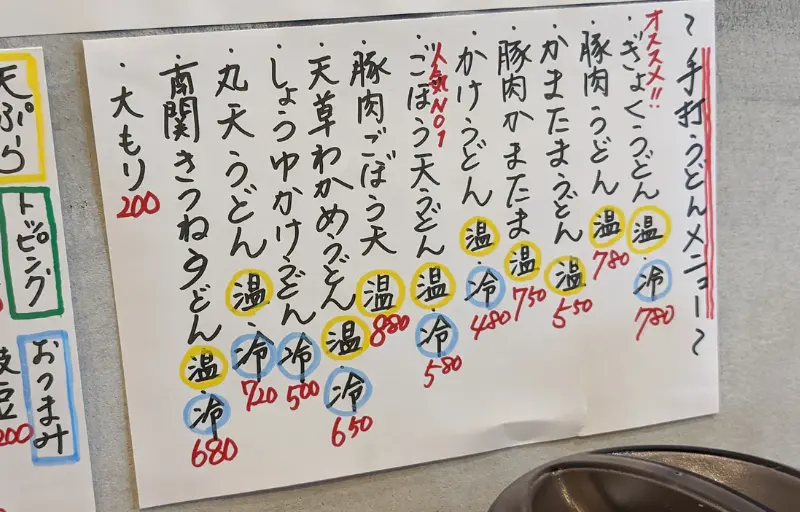 ~手打うどんメニュー~
オススメ!!
・ぎょくうどん 温 冷 780
・豚肉うどん 温 780
・かまたまうどん 温 550
・豚肉かまたま 温 750
・かけうどん 温 冷 480
人気NO1
・ごぼう天うどん 温 冷 580
・豚肉ごぼう天 温 880
・天草わかめうどん 温 冷 650
・しょうゆかけうどん 冷 500
・丸天うどん 温 冷 720
・南関きつねうどん 温 冷 680
・大もり 200
天ぷら
トピング
おつまみ
枝豆
200